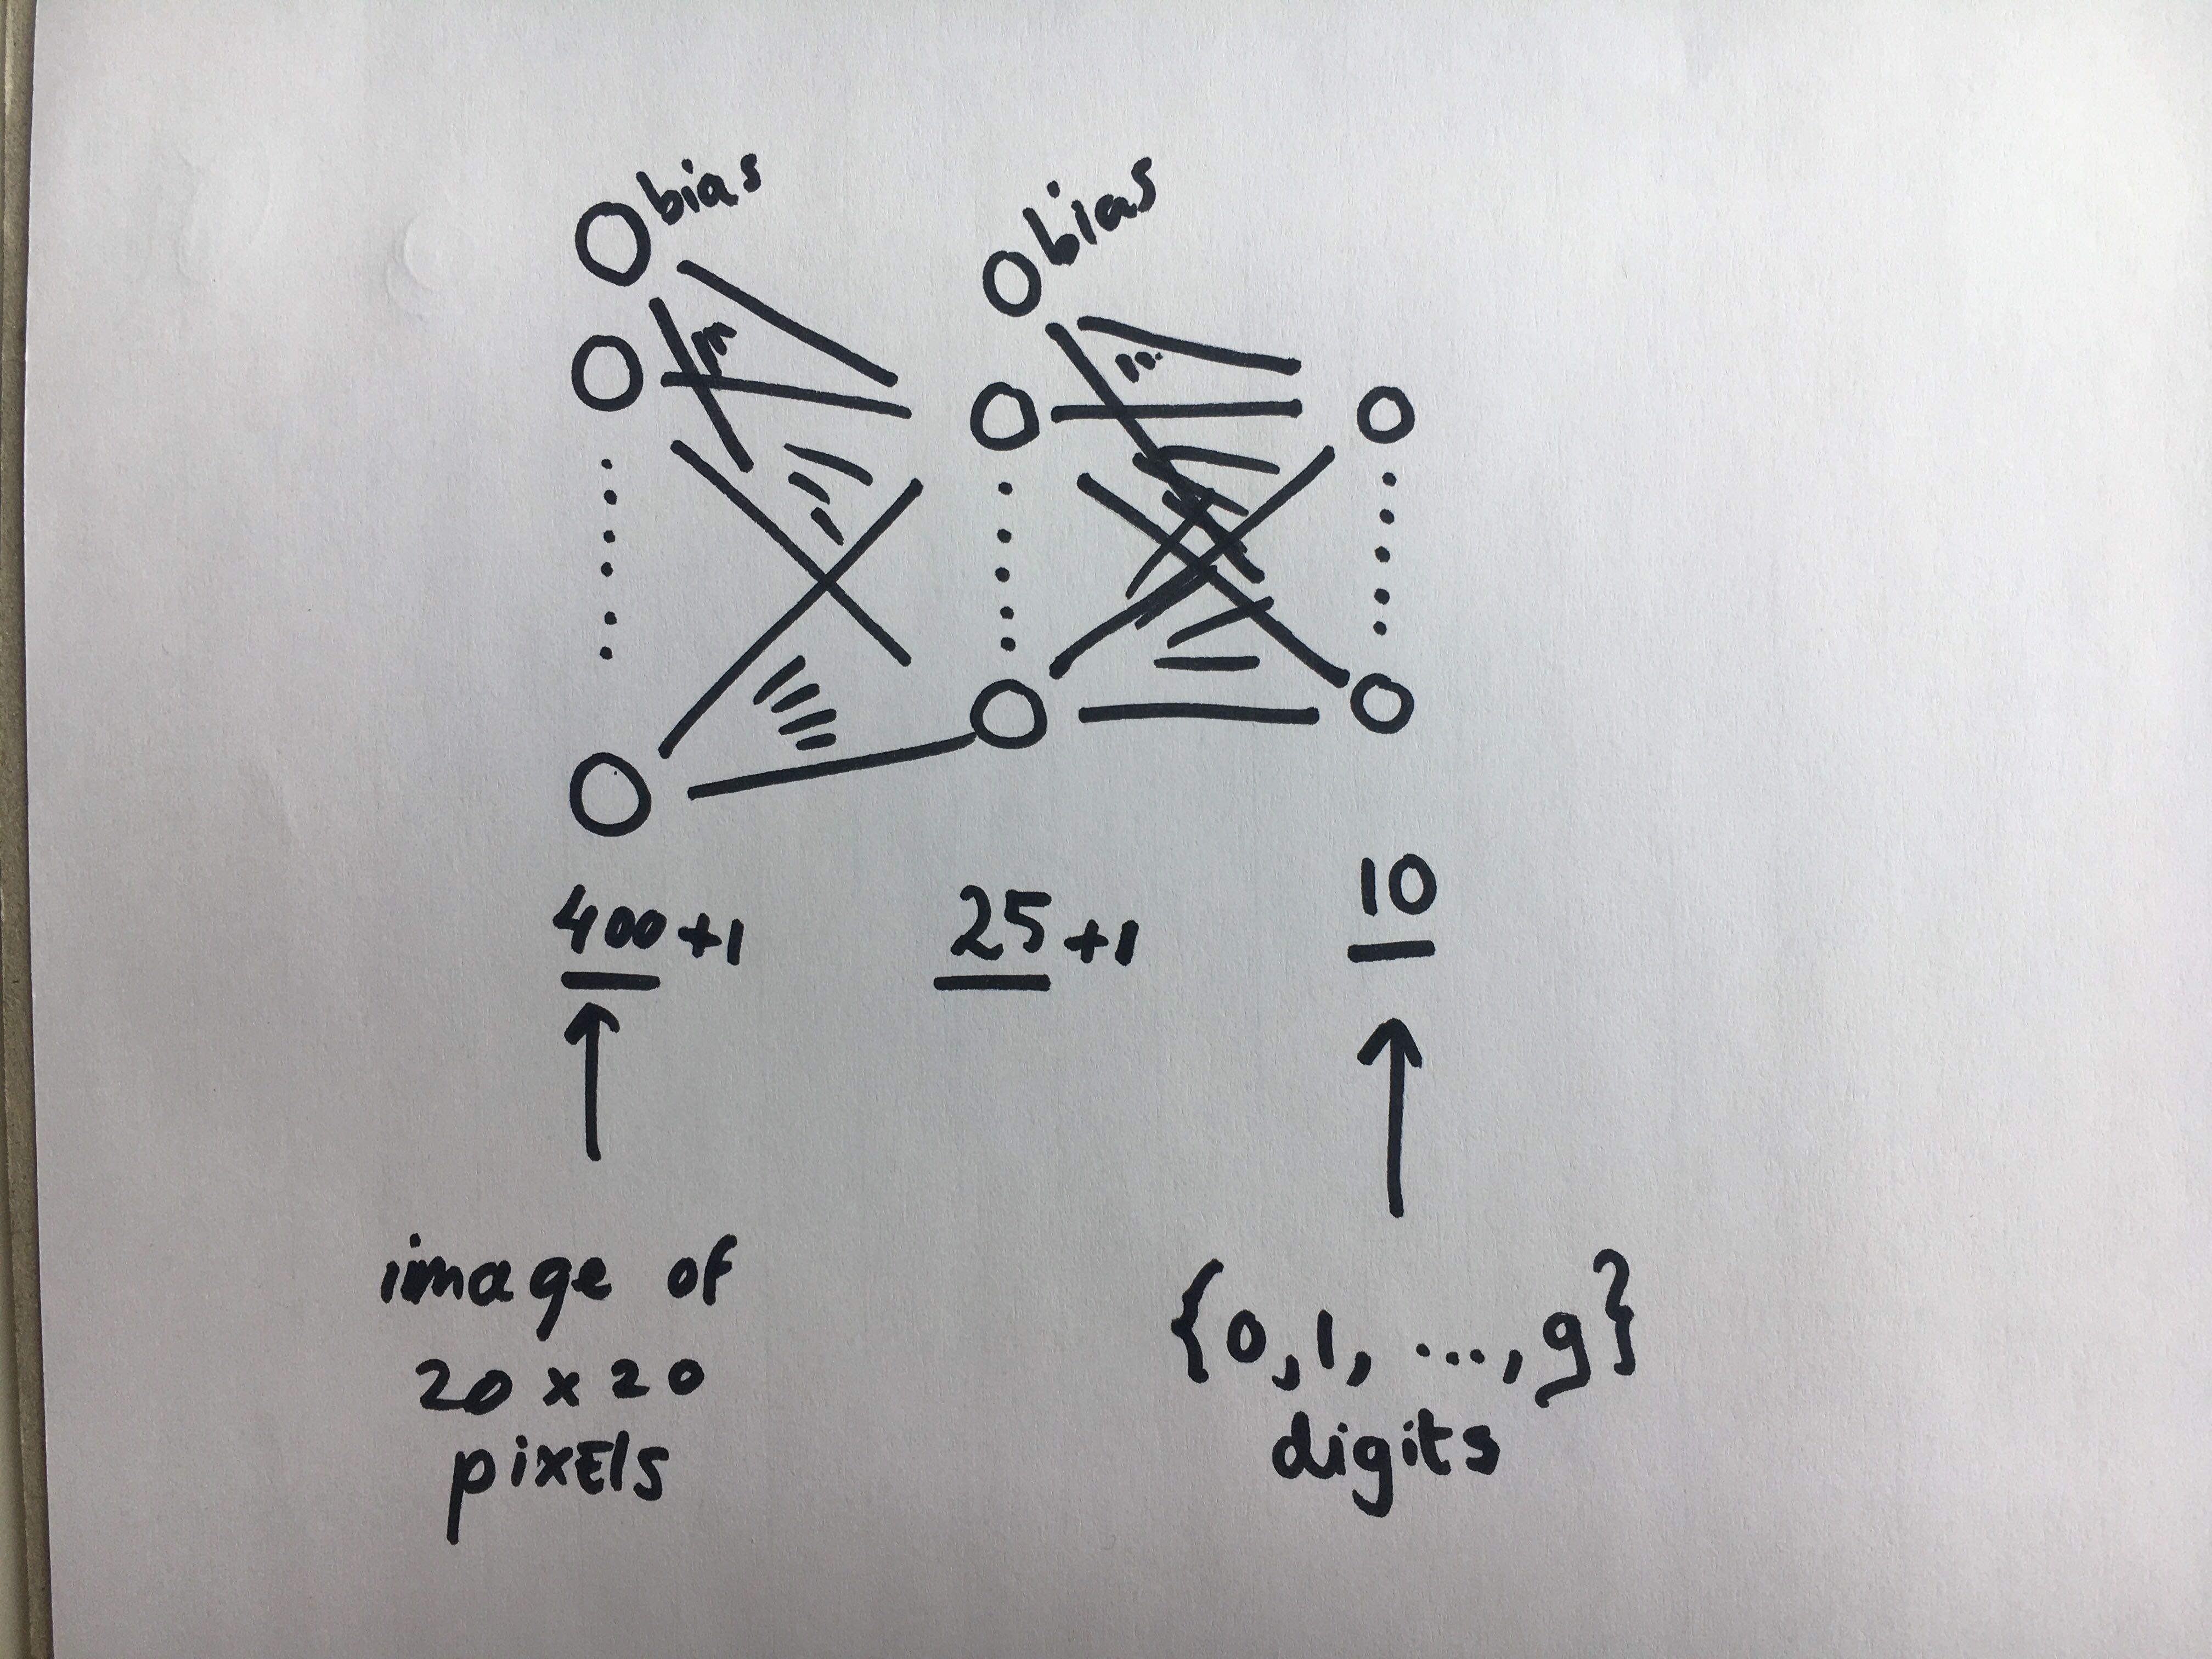 bias
bias
400+1
25+1
10
image of
20 x 20
pixels
{0,1, ...,9}
digits